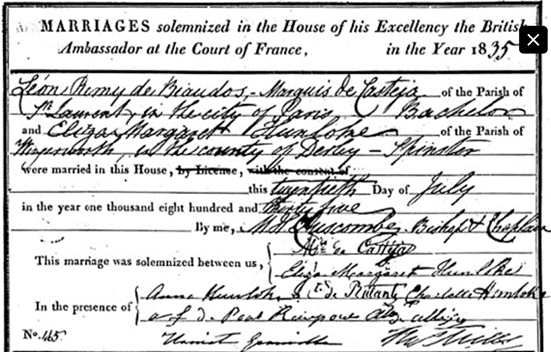 MARRIAGES solemnized in the House of his Excellency the British
Ambassador at the Court of France, in the Year 1835
Léon Remy de Biaudos - Marquis de Casteja of the Parish of
St. Laurent, in the city of Paris Bachelor
and Eliza Margaret Hunloke of the Parish of
Wingerworth, in the county of Derby - Spinster
were married in this House, by License, with the consent of
this twentieth Day of July
in the year one thousand eight hundred and Thirty five
By me, Luscombe Bishop & Chaplain
This marriage was solemnized between us, de Casteja
Eliza Margaret Hunloke
In the presence of Anna Hunloke Charlotte Hunloke
No. 465